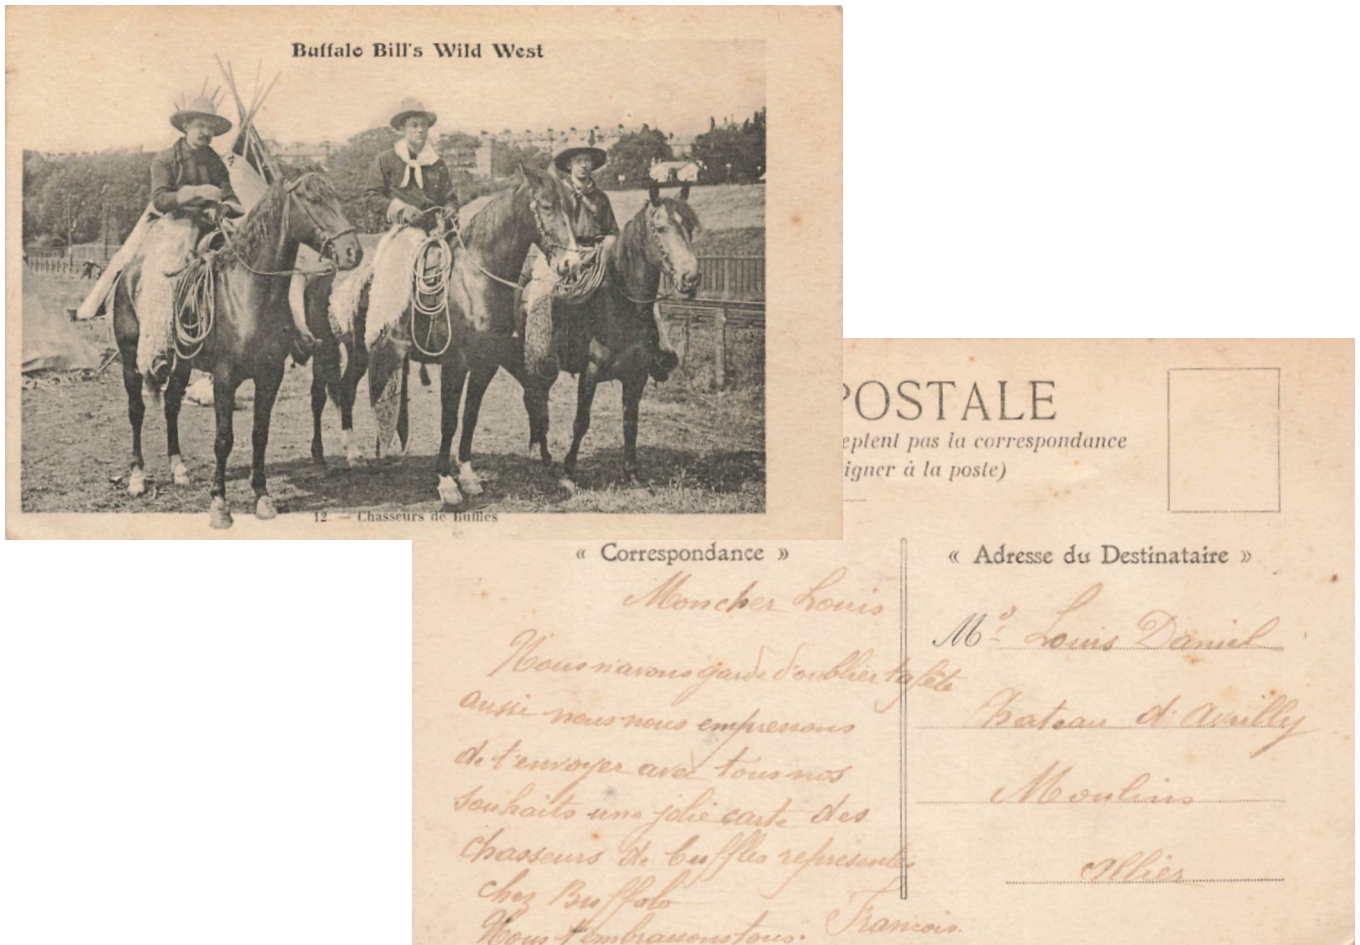 Buffalo Bill's Wild West
12. — Chasseurs de Buffles
POSTALE
eptent pas la correspondance
igner à la poste)
« Correspondance »
« Adresse du Destinataire »
Mon cher Louis
Nous n'avons garde d'oublier ta fête
aussi nous nous empressons
de t'envoyer avec tous nos
souhaits une jolie carte des
chasseurs de buffles représentés
chez Buffolo
Nous t'embrassons tous. François.
Mr Louis Daniel
Chateau d'Avrilly
Moulins
Allier